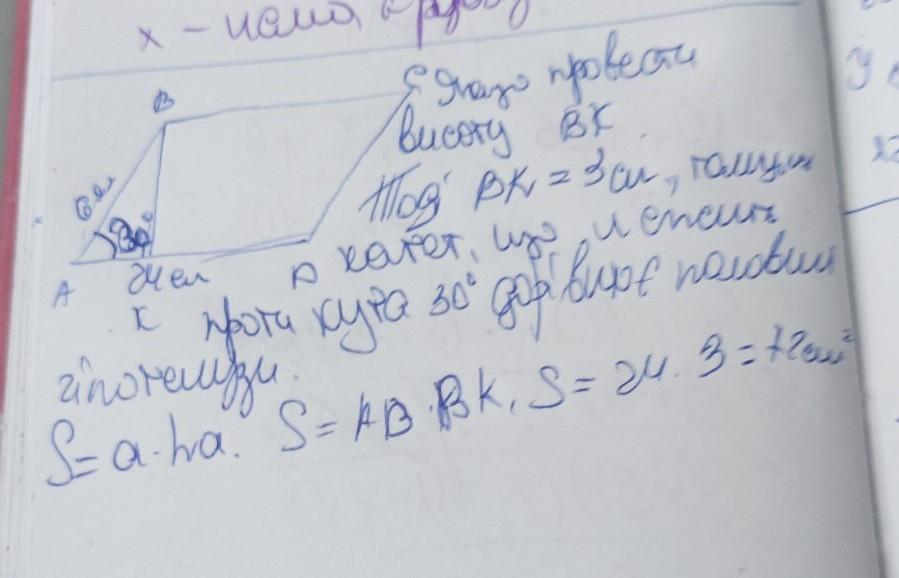 х - нама
B
C Якщо провести
висоту BK.
6см
Тоді BK = 3см, 
30°
катет, що лежить
A 24см D
K проти кута 30° дорівнює половині
гіпотенузи.
S = a · ha. S = AB · BK, S = 24 · 3 = 72см²